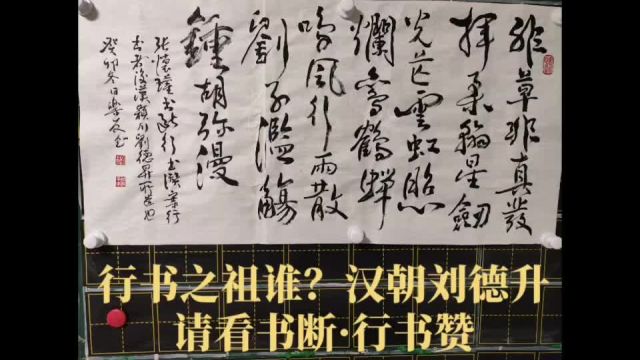 非草非真發
揮柔翰星劍
光芒雲虹照
爛鸞鶴嬋
娟風行雨散
劉子濫觴
鍾胡弥漫
張懷瓘书斷行书赞案行
书者後漢潁川劉德昇所造也
癸卯冬日
行书之祖谁？汉朝刘德升
请看书断·行书赞